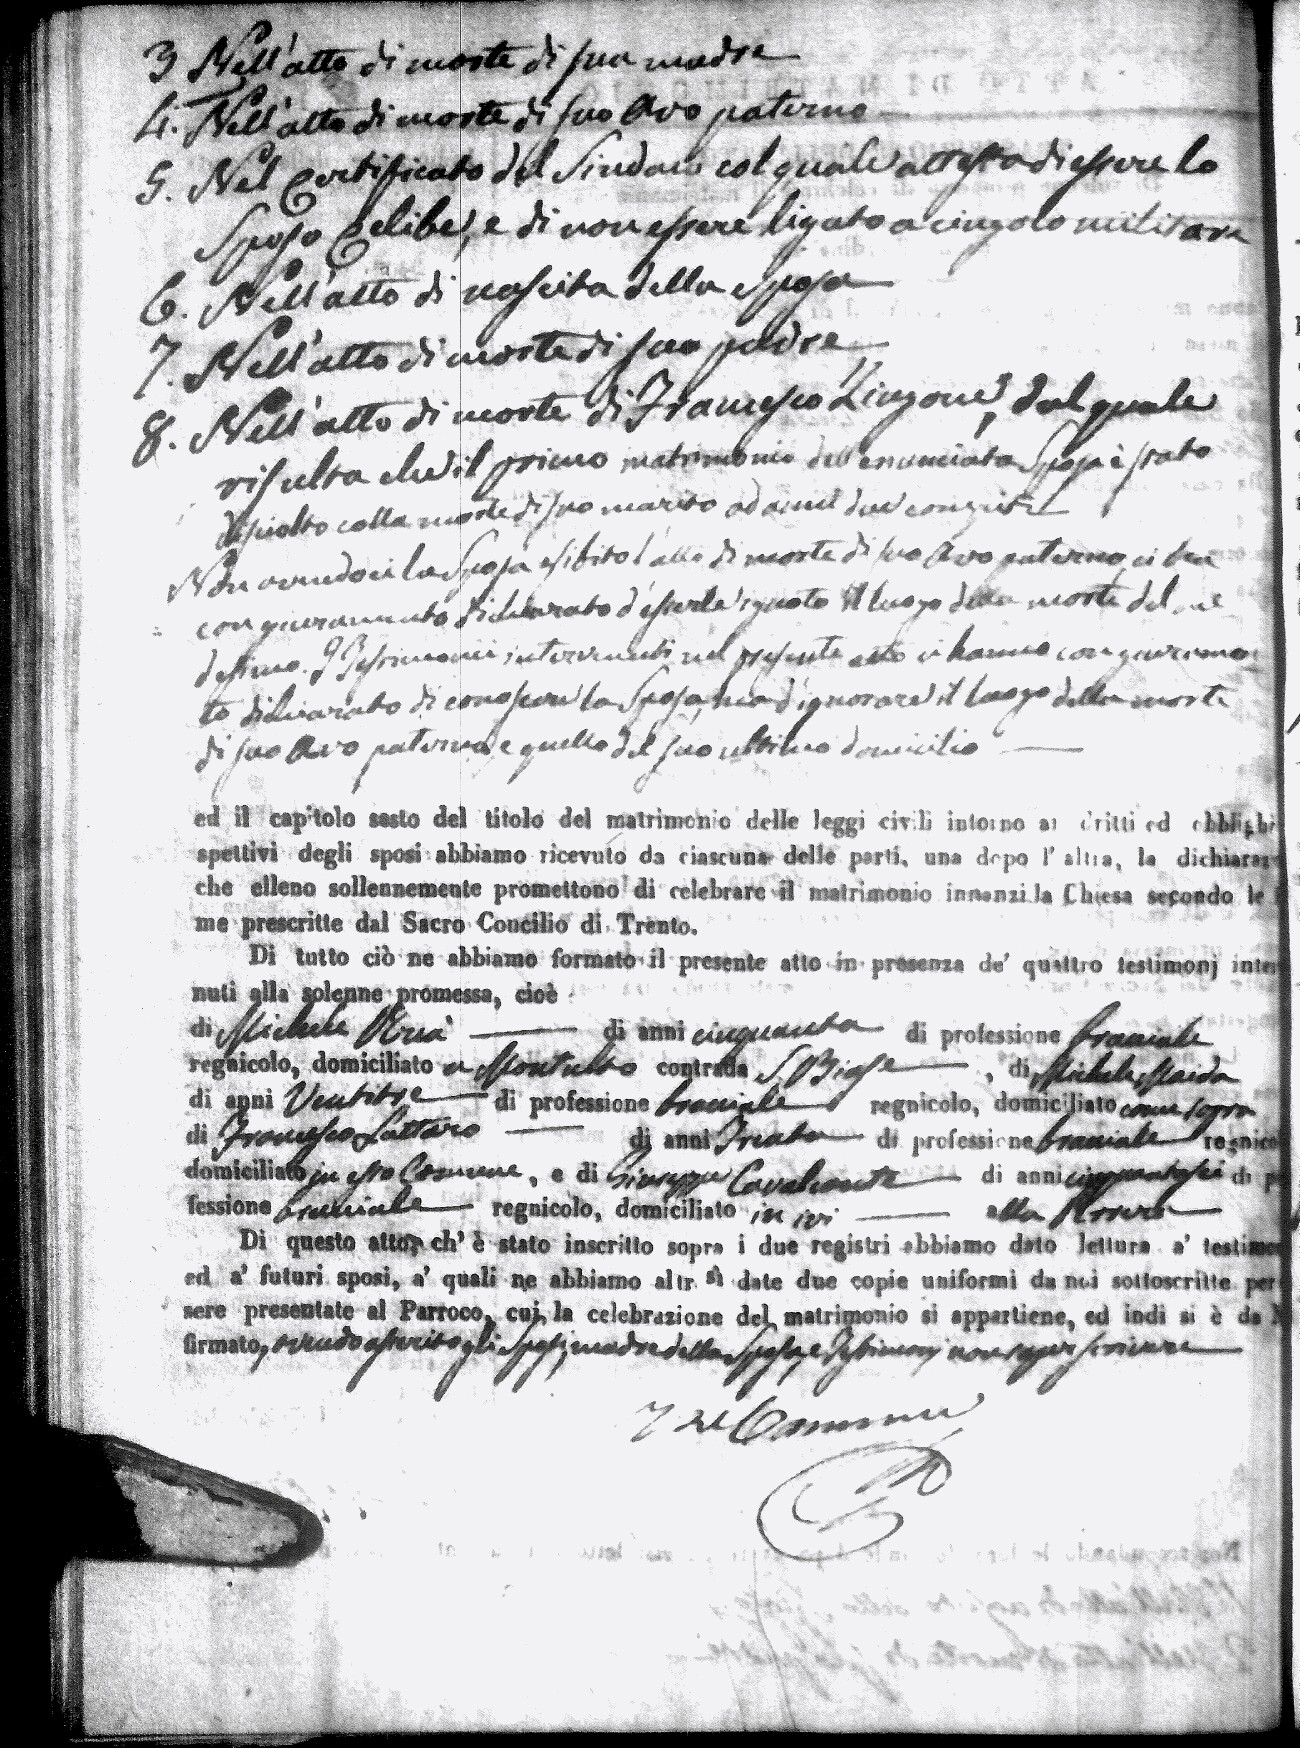 3 Nell'atto di morte di sua madre
4. Nell'atto di morte di suo Avo paterno
5. Nel Certificato del Sindaco col quale attesta di essere lo
Sposo Celibe, e di non essere ligato a cingolo militare
6. Nell'atto di nascita della sposa
7. Nell'atto di morte di suo padre
8. Nell'atto di morte di Francesco Zingone, dal quale
risulta che il primo matrimonio dell'enunciata Sposa è stato
disciolto colla morte di suo marito
Non avendoci la Sposa esibito l'atto di morte di suo Avo paterno, ci ha
con giuramento dichiarato d'esserle ignoto il luogo della morte del me
desimo. I Testimonii intervenuti nel presente atto ci hanno con giuramen
to dichiarato di conoscere la Sposa, ma d'ignorare il luogo della morte
di suo Avo paterno, e quello del suo ultimo domicilio
ed il capitolo sesto del titolo del matrimonio delle leggi civili intorno ai dritti ed obblighi
spettivi degli sposi abbiamo ricevuto da ciascuna delle parti, una dopo l'altra, la dichiaraz
che elleno sollennemente promettono di celebrare il matrimonio innanzi la Chiesa secondo le
me prescritte dal Sacro Concilio di Trento.
Di tutto ciò ne abbiamo formato il presente atto in presenza de' quattro testimonj inter
nuti alla solenne promessa, cioè
di Michele di anni cinquanta di professione bracciale
regnicolo, domiciliato a Montalto contrada S. Biase, di Michele Maida
di anni Ventitre di professione bracciale regnicolo, domiciliato come sopra
di Francesco Lattaro di anni Trenta di professione bracciale regnico
domiciliato in esso Comune, e di Giuseppe Cavalcante di anni cinquantasei di p
fessione bracciale regnicolo, domiciliato in ivi alla
Di questo atto, ch'è stato inscritto sopra i due registri abbiamo dato lettura a' testimo
ed a' futuri sposi, a' quali ne abbiamo altresì date due copie uniformi da noi sottoscritte per
sere presentate al Parroco, cui la celebrazione del matrimonio si appartiene, ed indi si è da N
firmato, avendo asserito gli Sposi, madre della Sposa, e Testimonj non saper scrivere